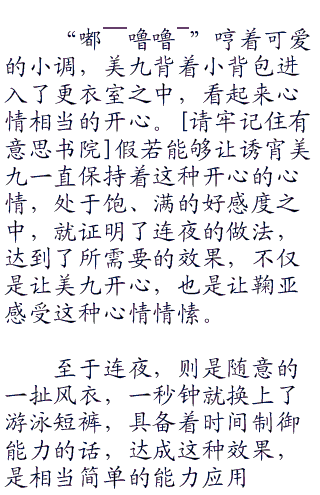 “嘟￣噜噜ˉ”哼着可爱
的小调，美九背着小背包进
入了更衣室之中，看起来心
情相当的开心。[请牢记住有
意思书院]假若能够让诱宵美
九一直保持着这种开心的心
情，处于饱、满的好感度之
中，就证明了连夜的做法，
达到了所需要的效果，不仅
是让美九开心，也是让鞠亚
感受这种心情情愫。
至于连夜，则是随意的
一扯风衣，一秒钟就换上了
游泳短裤，具备着时间制御
能力的话，达成这种效果，
是相当简单的能力应用